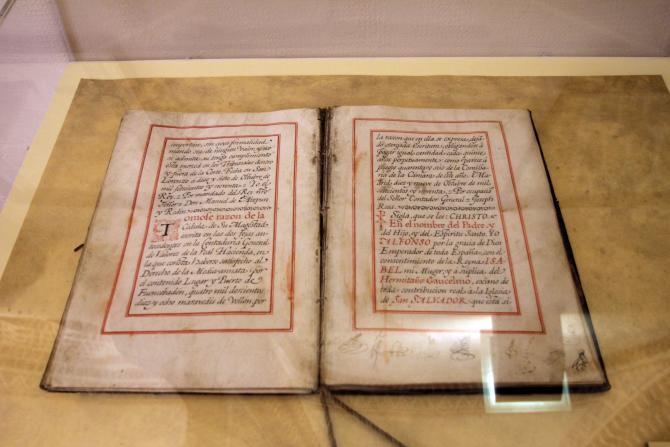 importan, sin cuya formalidad
mando sea de ningun valor, ni se
admita, ni tenga cumplimiento
esta merced en los Tribunales dentro
y fuera de la Corte. Fecha en San
Lorenzo a diez y siete de Octubre de
mil setecientos y noventa = Yo el
Rey = Por mandado del Rey nro
Señor = Don Manuel de Aizpun
y Redin
Tomose razon de la
Cedula de Su Magestad
escrita en las dos fojas an-
tecedentes en la Contaduria General
de Valores de la Real Hacienda, en
la que consta haberse satisfecho al
Derecho de la Media-annata por
el contenido Lugar y Puerto de
Fuencebadon, quatro mil doscientos
diez y ocho maravedis de Vellon, por
la razon que en ella se expresa, dejan-
do otorgada Escritura, obligandose a
pagar igual cantidad cada quince
años perpetuamente, como parece a
pliego quarenta y seis de la Comisa-
ria de la Camara de este año. Ma-
drid diez y nueve de Octubre de mil
setecientos y noventa = Por ocupacion
del Señor Contador General = Joseph
Ruiz
Sigla, que se lee: CHRISTO
En el nombre del Padre, y
del Hijo, y del Espiritu Santo. YO
D. ALFONSO por la gracia de Dios
Emperador de toda España, con el
consentimiento de la Reyna ISA-
BEL mi Muger, y a suplica del
Hermitaño Gaucelmo, eximo de
toda contribucion real a la Iglesia
de San SALVADOR que está si-